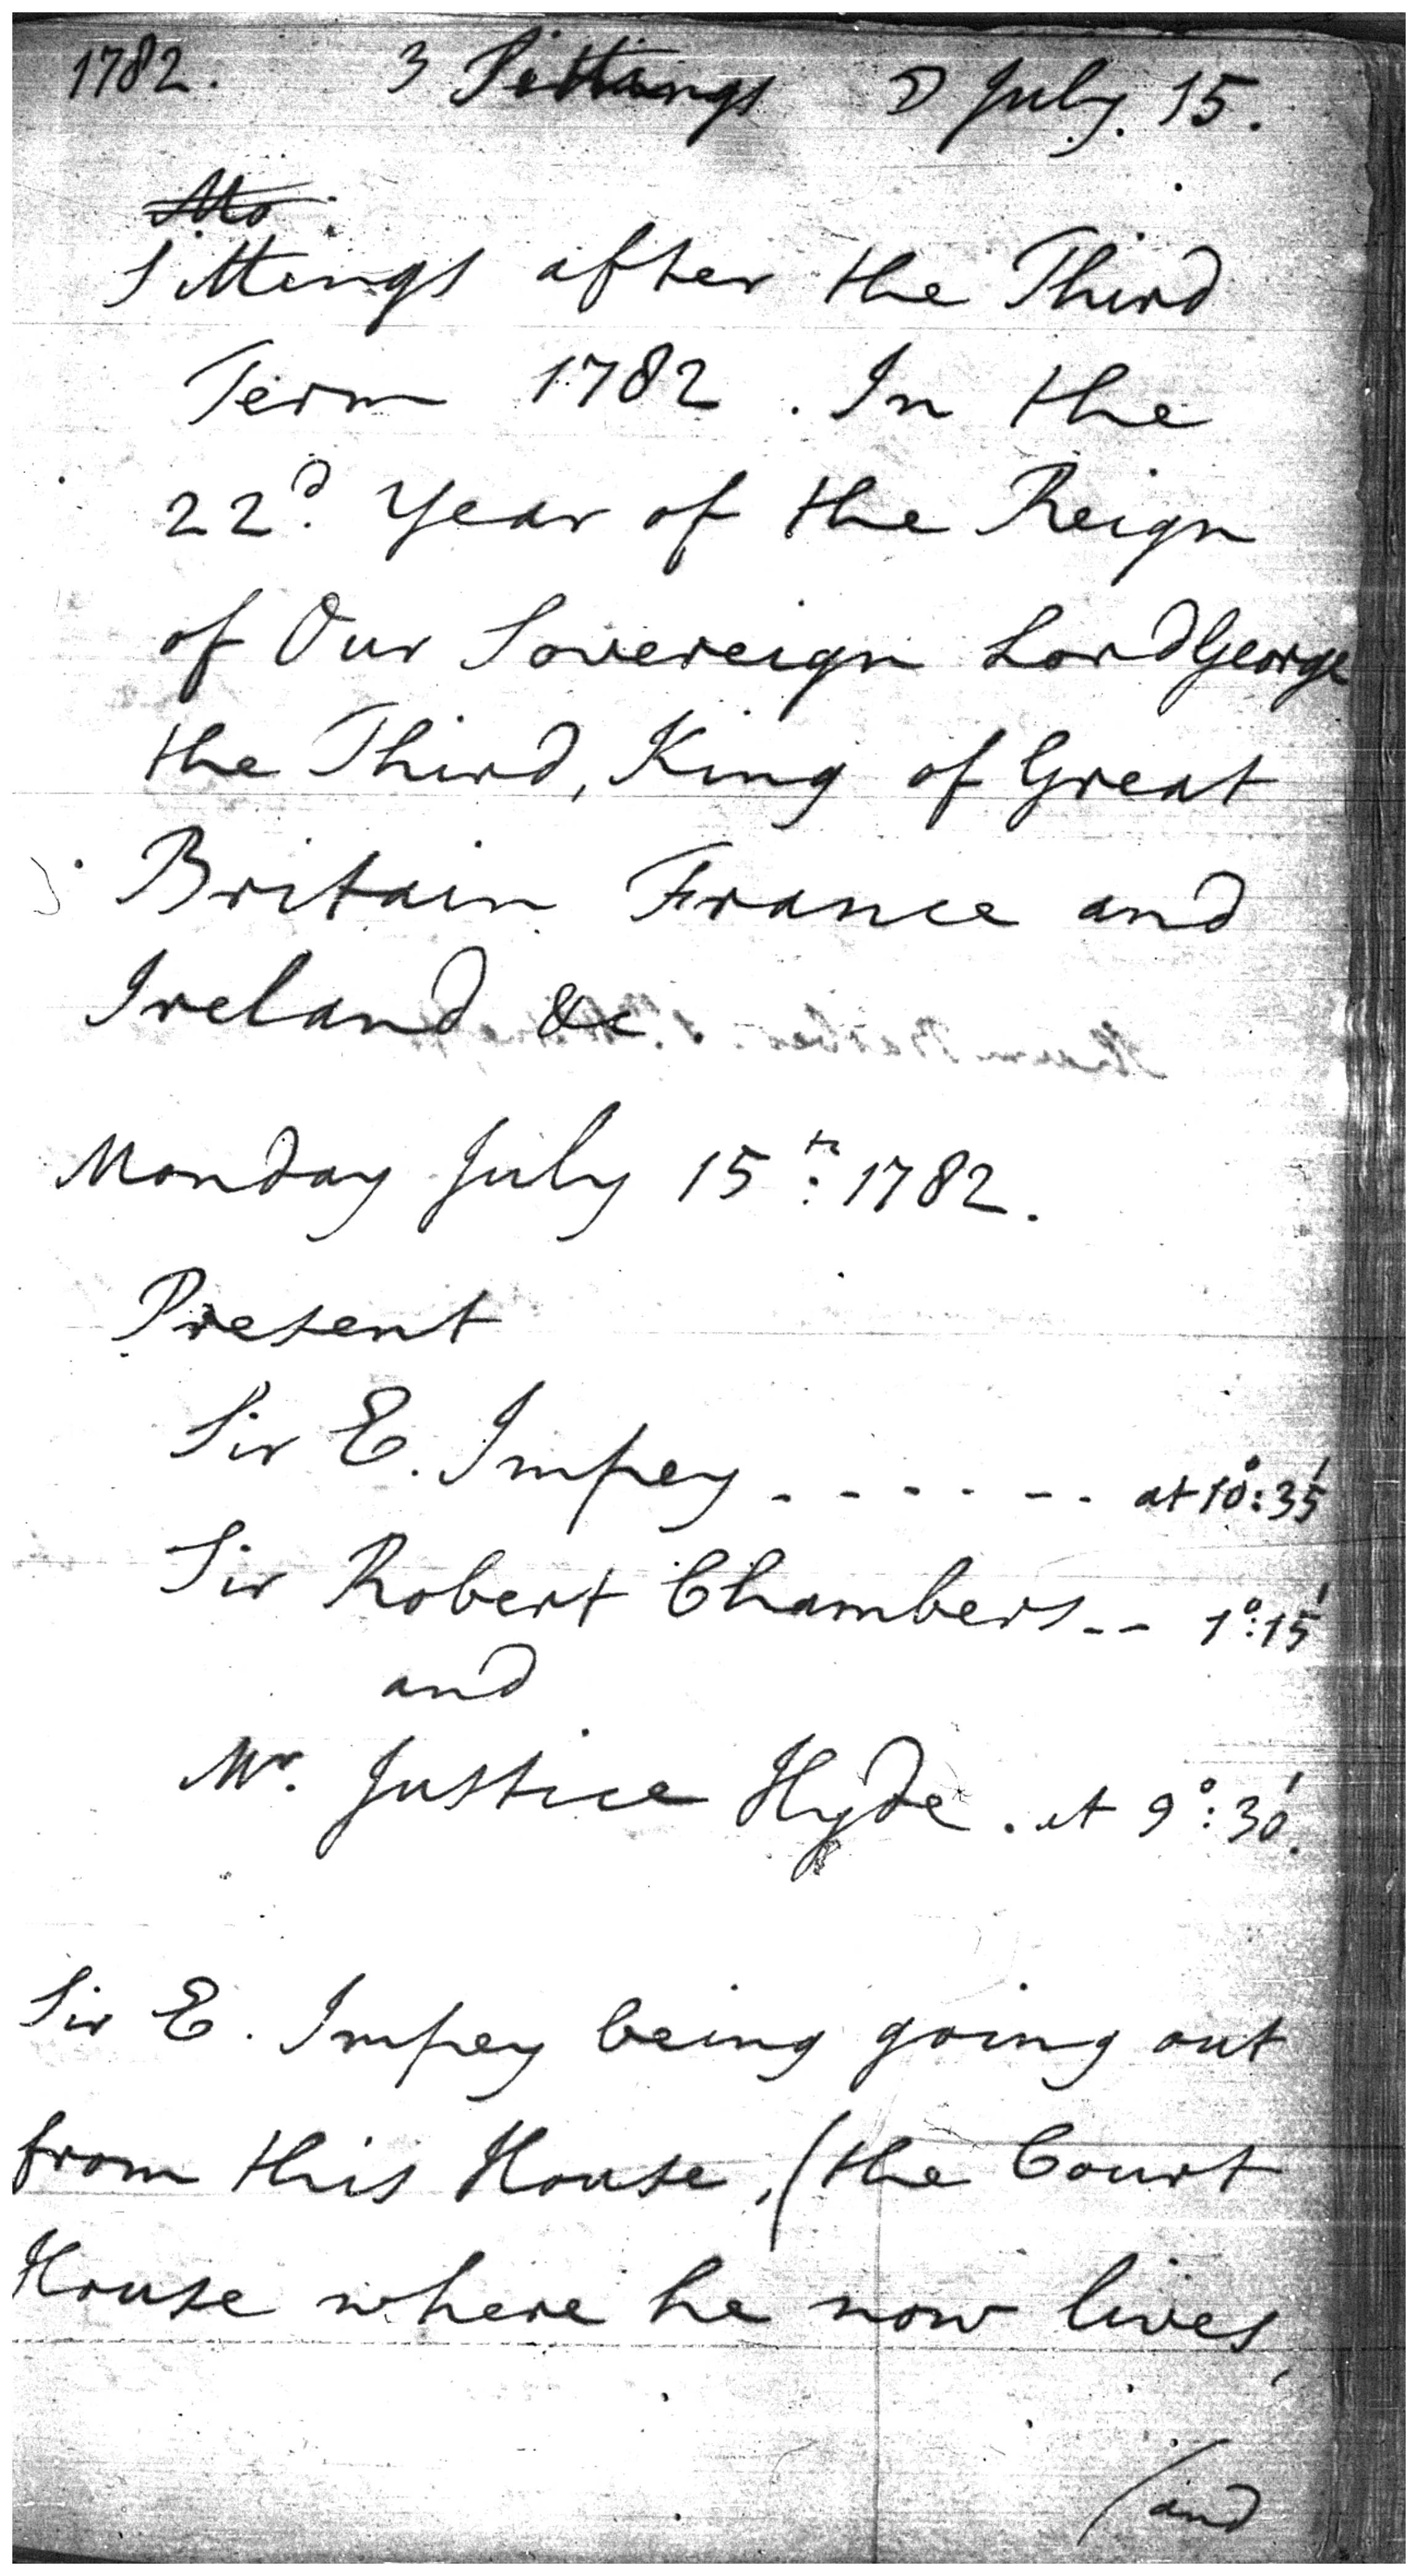 1782. 3 Sittings ☽ July. 15.
Mo
Sittings after the Third
Term 1782. In the
22d. Year of the Reign
of Our Sovereign Lord George
the Third, King of Great
Britain France and
Ireland &c
Monday July 15th: 1782.
Present
Sir E. Impey - - - - - - at 10°: 35'
Sir Robert Chambers - - 1°: 15'
and
Mr. Justice Hyde . at 9°: 30'.
Sir E. Impey being going out
from this House, (the Court
House where he now lives,
(and